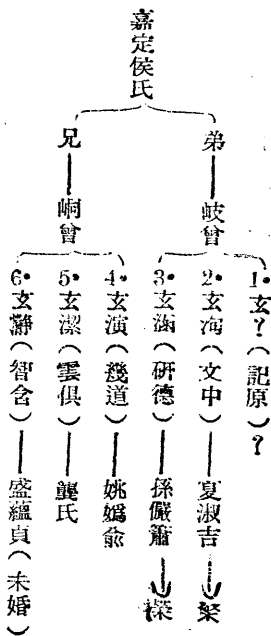 嘉定侯氏
弟
兄
岐曾
峒曾
1•玄?(記原)?
2•玄洵(文中)—夏淑吉→
3•玄涵(研德)—孫儼簫→榮
4•玄演(幾道)—姚嬀俞
5•玄潔(雲俱)—龔氏
6•玄瀞(智含)—盛蘊貞(未婚)